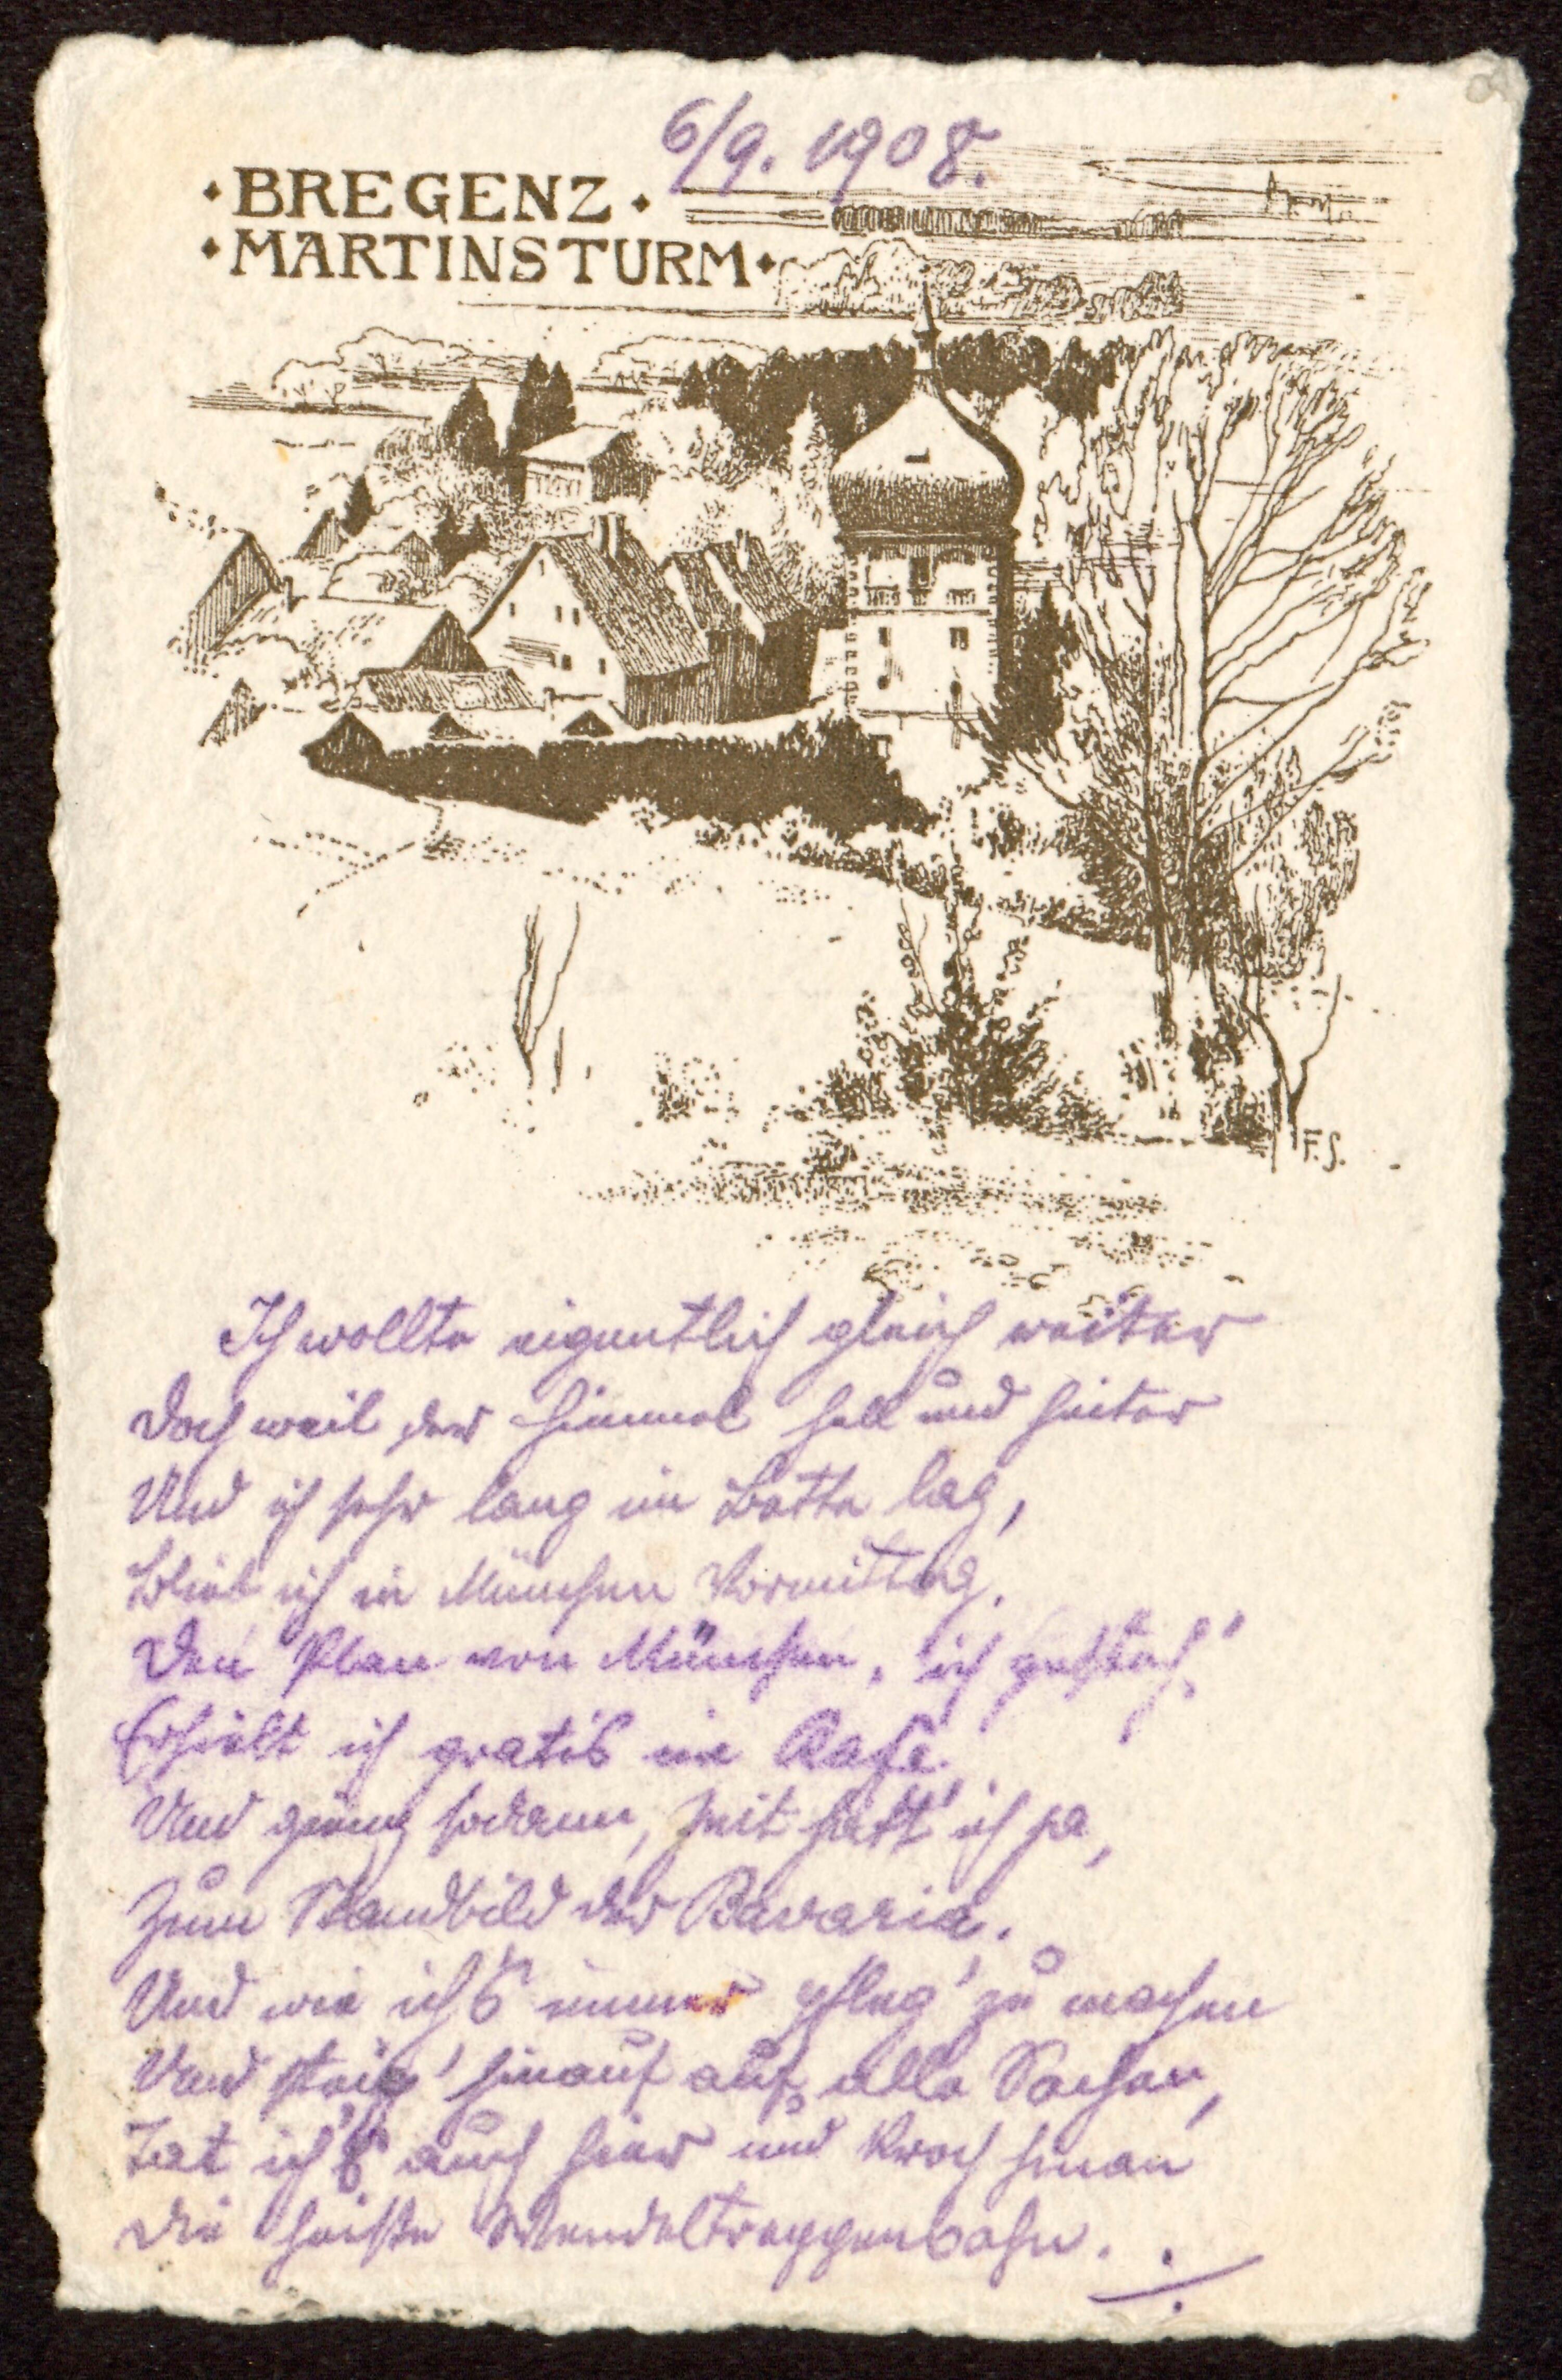 6/9. 1908.
·BREGENZ·
·MARTINSTURM·
F.S.
Ich wollte eigentlich gleich weiter
Doch weil der Himmel hell und heiter
Und ich sehr lang im Bette lag,
Blieb ich in München Vormittag.
Den Plan von München, ich gesteh'
Erhielt ich gratis im Kafe.
Und gieng sodann, Zeit hatt' ich ja,
Zum Standbild der Bavaria.
Und wie ich's immer pfleg' zu machen
Und steig' hinauf auf alle Sachen,
Tat ich's auch hier und kroch hinan
Die heiße Wendeltreppenbahn.